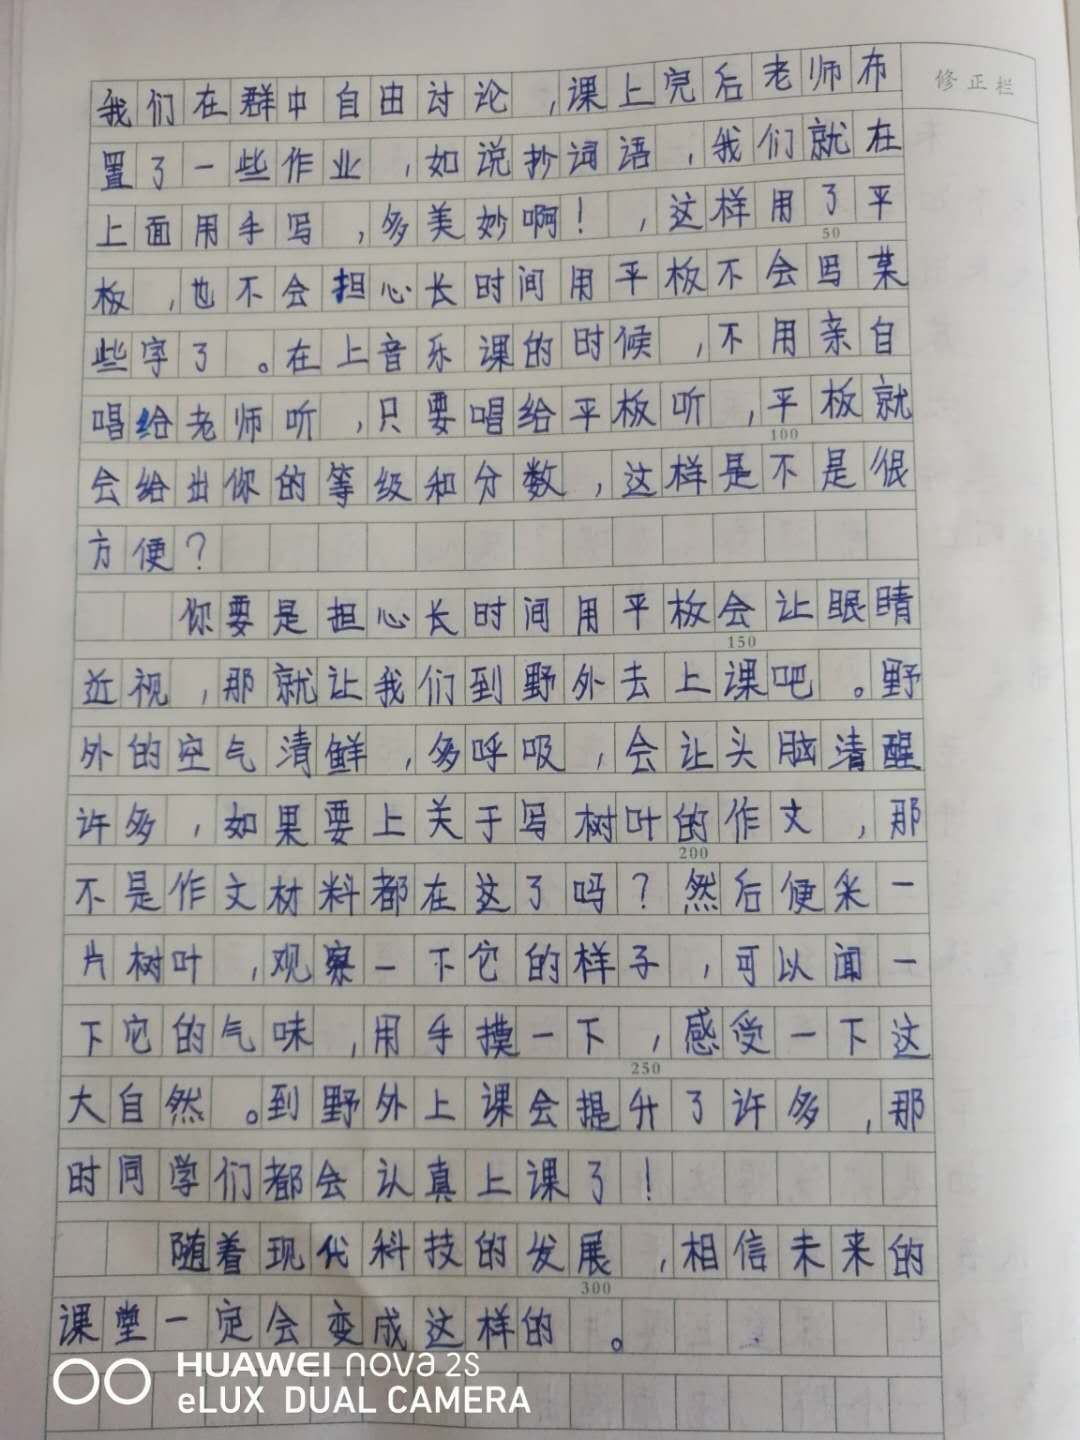 修正栏
我们在群中自由讨论,课上完后老师布
置了一些作业,如说抄词语,我们就在
上面用手写,多美妙啊!,这样用了平
50
板,也不会担心长时间用平板不会写某
些字了。在上音乐课的时候,不用亲自
唱给老师听,只要唱给平板听,平板就
100
会给出你的等级和分数,这样是不是很
方便?
你要是担心长时间用平板会让眼睛
150
近视,那就让我们到野外去上课吧。野
外的空气清鲜,多呼吸,会让头脑清醒
许多,如果要上关于写树叶的作文,那
200
不是作文材料都在这了吗?然后便采一
片树叶,观察一下它的样子,可以闻一
下它的气味,用手摸一下,感受一下这
250
大自然。到野外上课会提升了许多,那
时同学们都会认真上课了!
随着现代科技的发展,相信未来的
300
课堂一定会变成这样的。
HUAWEI nova 2s
eLUX DUAL CAMERA